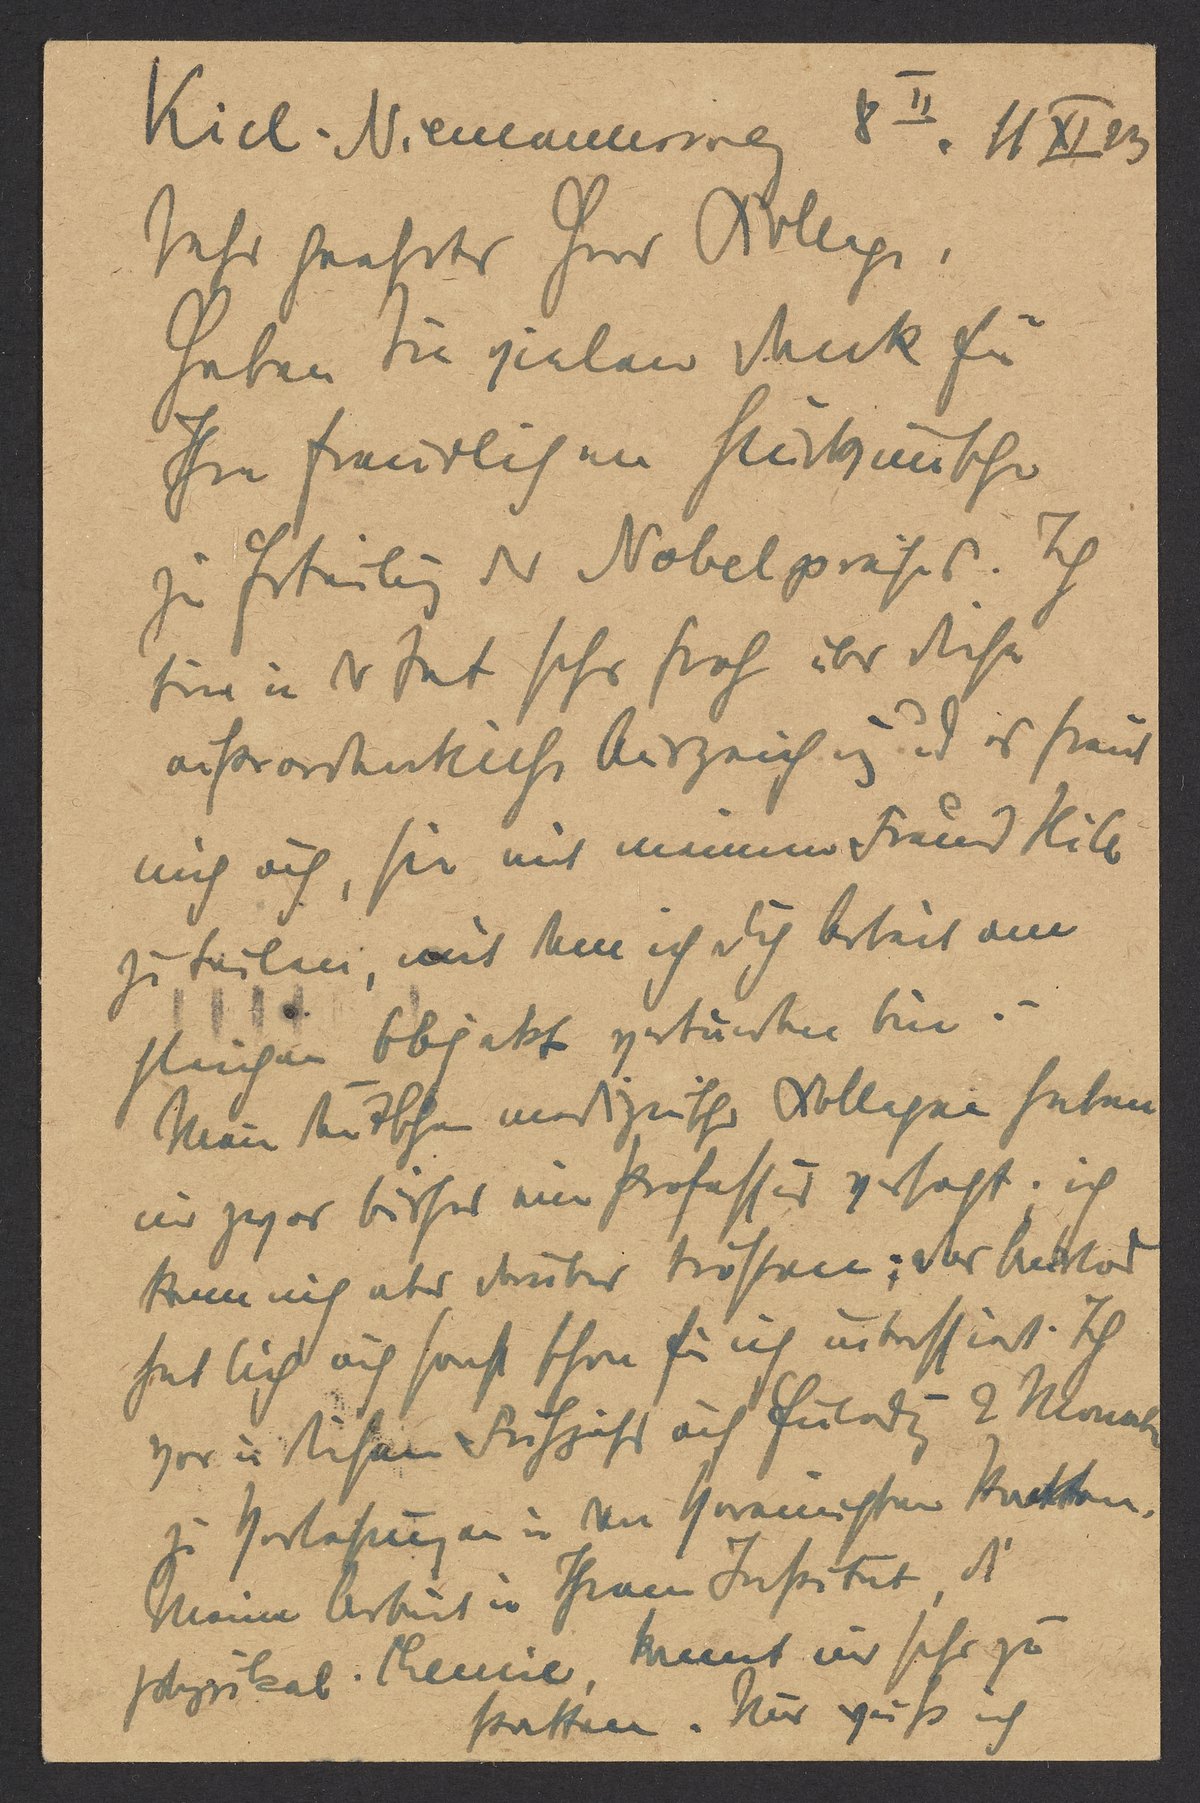 Kiel. Niemannsweg 8 II. 11 XI 23
Sehr geehrter Herr Kollege,
Haben Sie vielen Dank für
Ihre freundlichen Glückwünsche
zu Erteilung des Nobelpreises. Ich
bin in der Tat sehr froh über diese
außerordentliche Auszeichnung und es freut
mich auch, sie mit meinem Freund Hill
zu teilen, mit dem ich durch Arbeit am
gleichen Objekt verbunden bin.
Meine deutschen medizinische Kollegen haben
mir zwar bisher eine Professur versagt, ich
kann mich aber darüber trösten; das Ausland
hat sich auch sonst schon für mich interessiert. Ich
war in diesem Frühjahr auf Einladung 2 Monate
zu Vorlesungen in den Vereinigten Staaten.
Meine Arbeit in Ihrem Institut, d.
physikal. Chemie, kommt mir sehr zu
statten. Nur muß ich